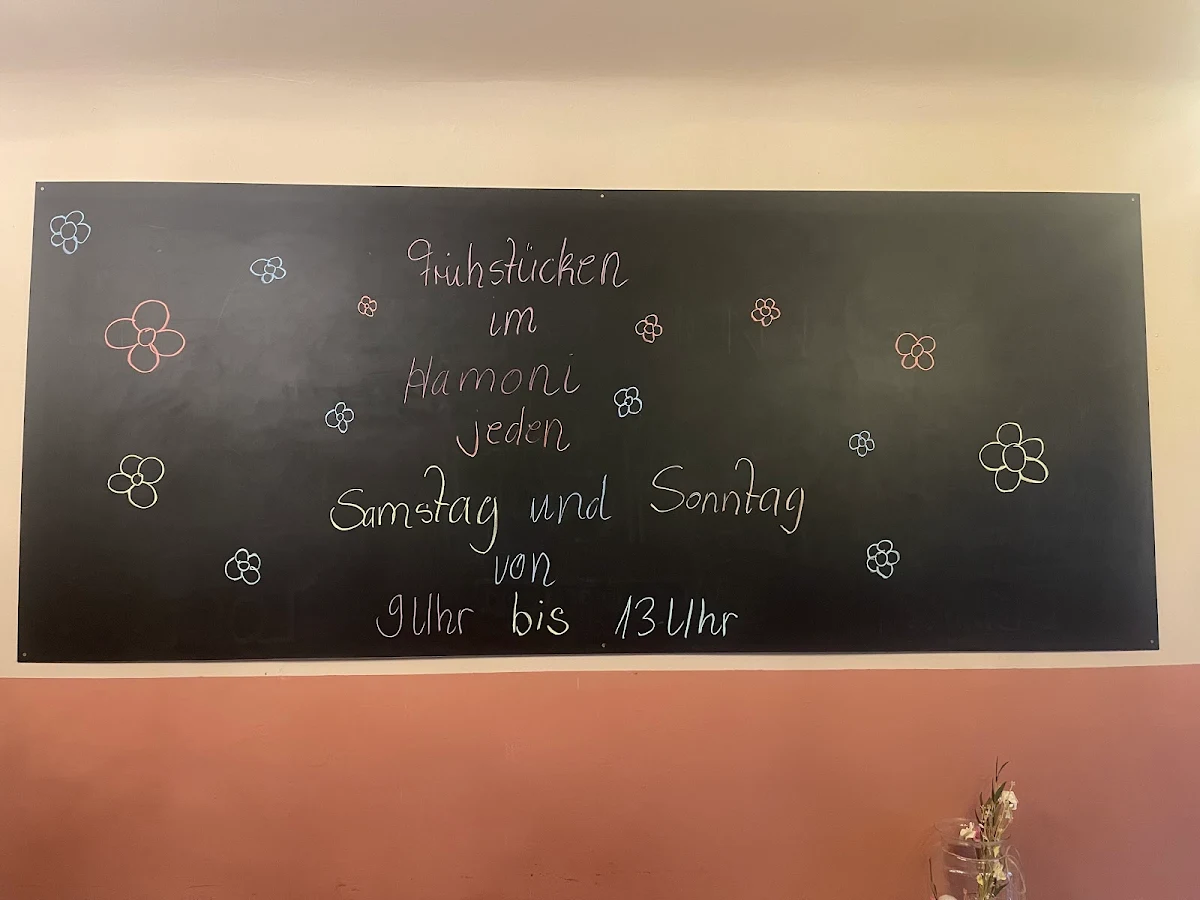 Frühstücken
im
Hamoni
jeden
Samstag und Sonntag
von
9 Uhr bis 13 Uhr